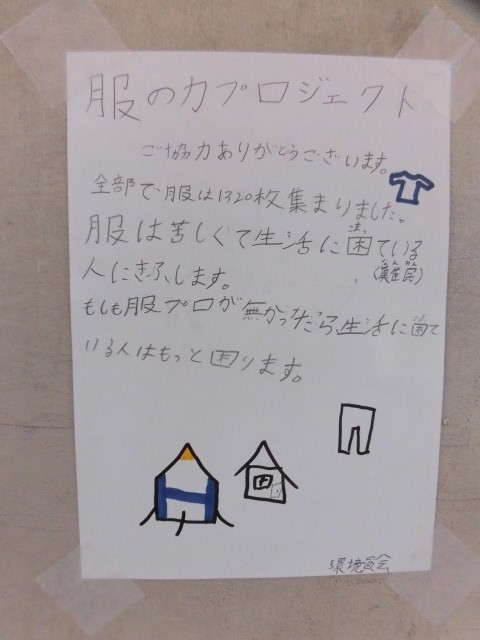 服の力プロジェクト
ご協力ありがとうございます。
全部で服は1320枚集まりました。
服は苦しくて生活に困っている
人にきふします。(難民)
もしも服プロが無かったら、生活に困って
いる人はもっと困ります。
環境委員会